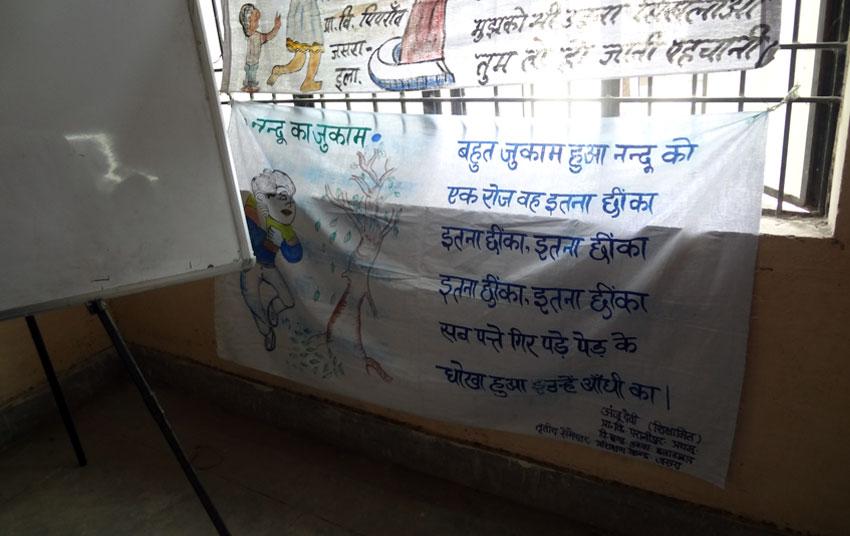 प्रा. वि. पियराँव
जसरा-
इला.
मुझको भी उड़ना सिखलाओ
तुम तो हो जानी पहचानी
नन्दू का जुकाम
बहुत जुकाम हुआ नन्दू को
एक रोज वह इतना छींका
इतना छींका, इतना छींका
इतना छींका, इतना छींका
सब पत्ते गिर पड़े पेड़ के
धोखा हुआ उन्हें आँधी का।
अंजू देवी (शिक्षामित्र)
प्रा. वि.
तृतीय सेमेस्टर
जसरा